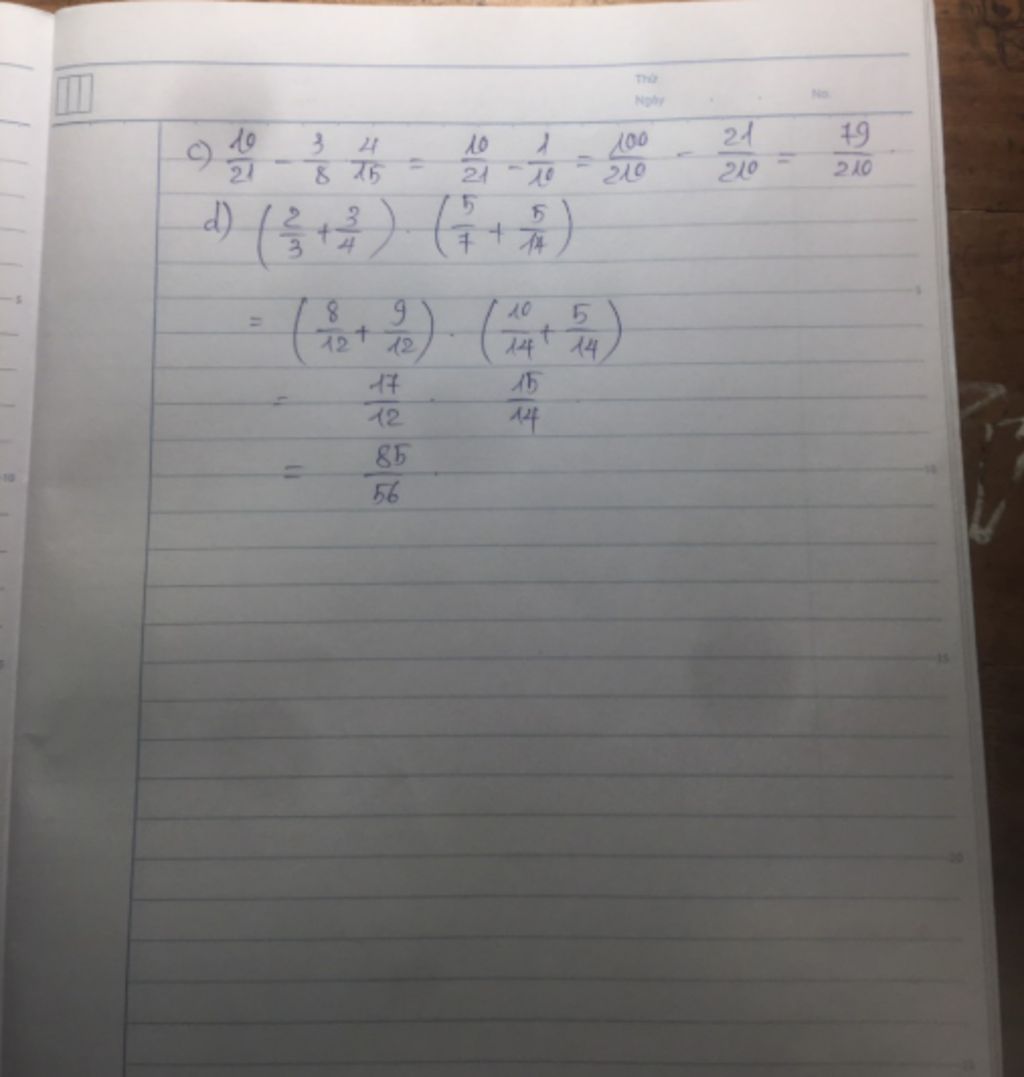 Thứ
Ngày . . No.
c) 10/21 - 3/8 4/15 = 10/21 - 1/10 = 100/210 - 21/210 = 79/210.
d) (2/3 + 3/4) . (5/7 + 5/14)
= (8/12 + 9/12) . (10/14 + 5/14)
= 17/12 . 15/14
= 85/56.
5
10
15
20